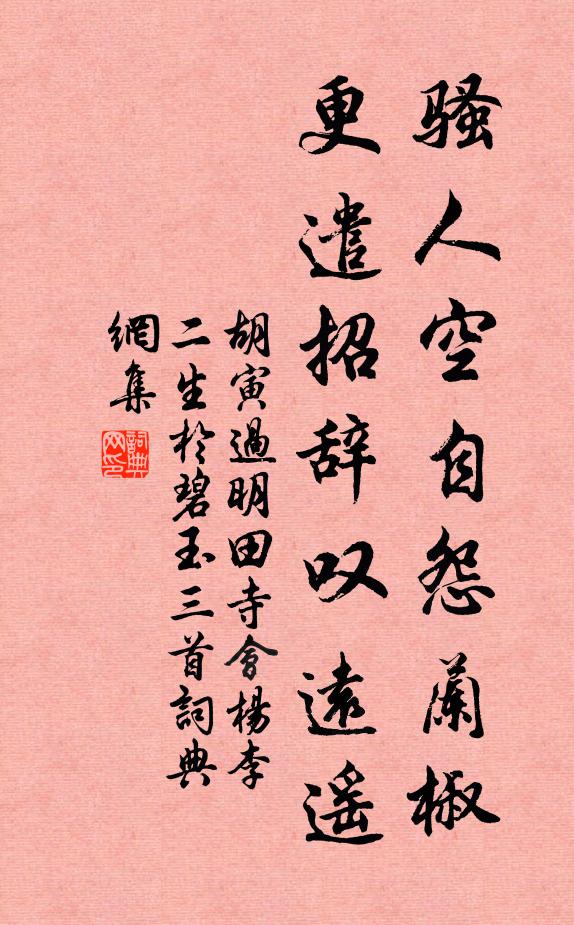 骚人空自怨蘭椒
更遣招辞叹遠遥
胡寅過明田寺會楊李
二生於碧玉三首詞典
網集
詞典网印